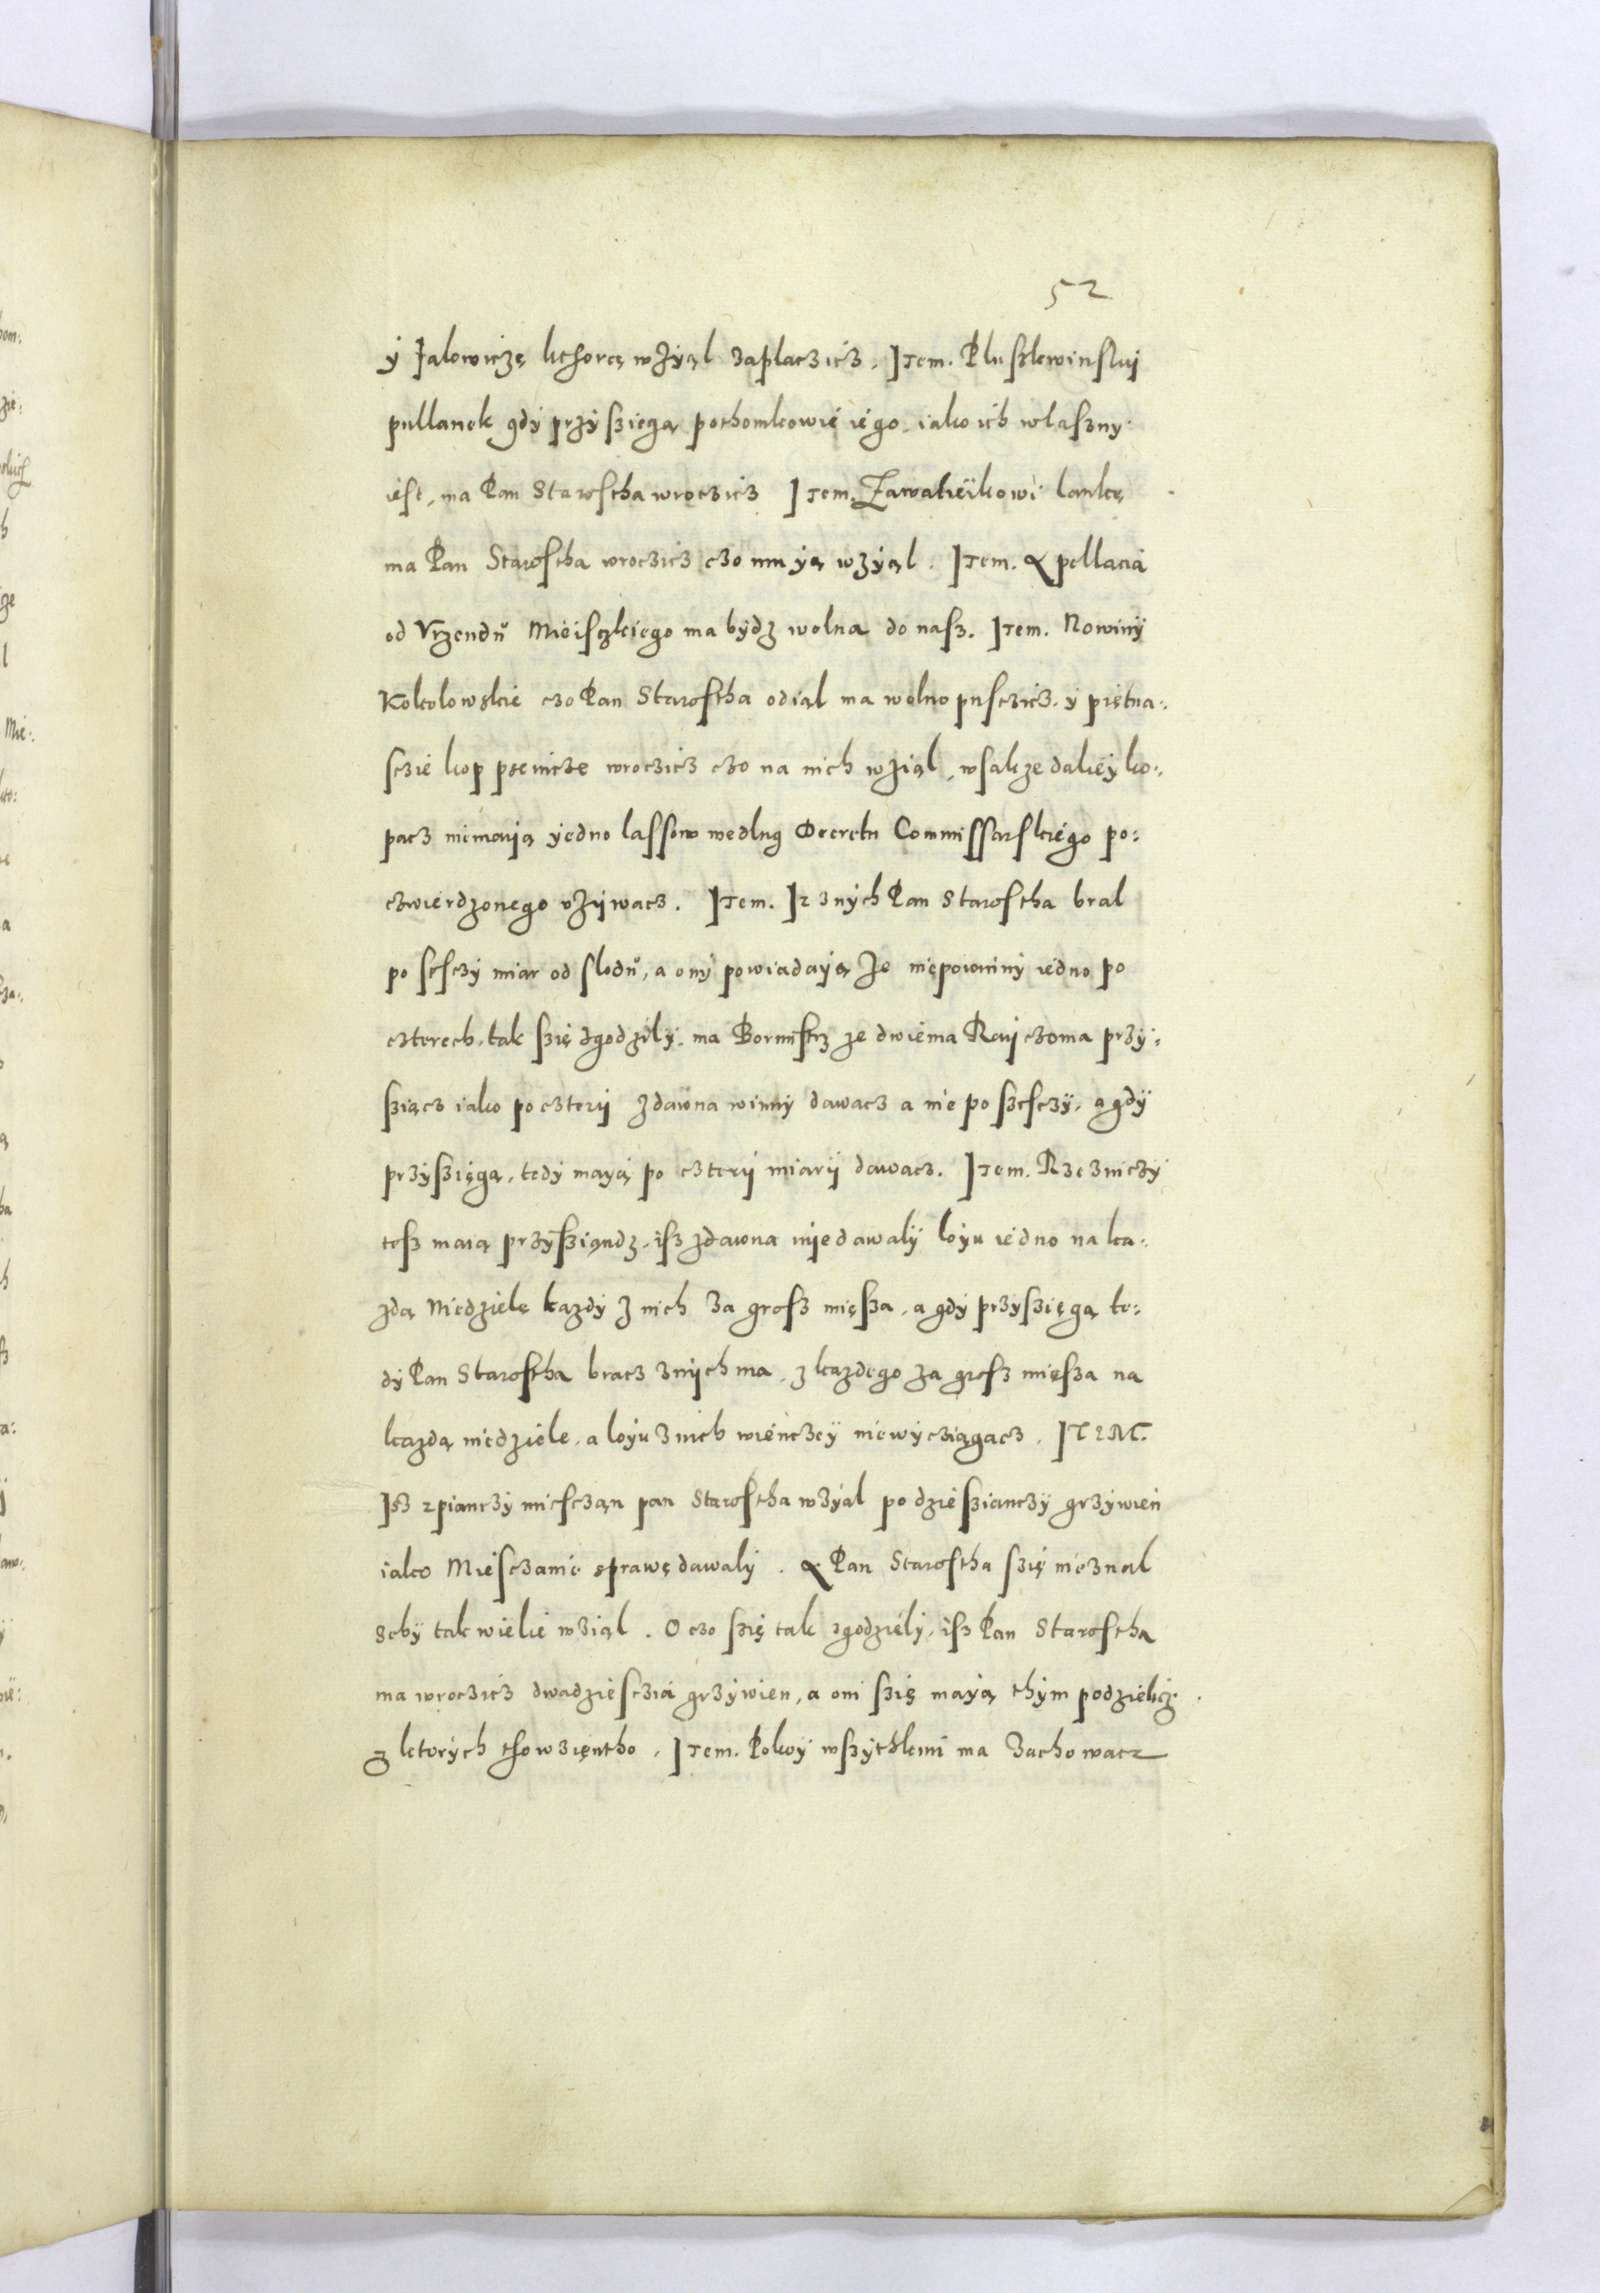 52
ẏ Jalowiczę kthorą wżyął zaplaczicz. Item. Pluszkwinskij
pullanek gdy przysziegą pothomkowie iego. iako ich wlaszny
iest, ma Pan Starostha wroczicz Item. Zawalieikowi lankę
ma Pan Starostha wroczicz czo mu yą wzyąl. Item. Apellacia
od Vrzendu Mieisczkiego ma bydz wolna do nasz. Item. Nowiny
Kokolowskie czo Pan Starostha odiąl ma wolno pusczicz. y piętna:
sczie kop psenicze wroczicz czo na nich wziąl, wsakze daliey ko:
pacz niemaią yedno lassow wedlug Decretu Commissarskiego po:
czwierdzonego vżywacz. Item. Iz znych Pan Starostha bral
po sesczy miar od slodu, a ony powiadayą że niepowinny iedno po
czterech, tak się zgodzily. ma Bormistrz ze dwiema Raijczoma przy:
sziącz iako po czterij zdawna winny dawacz a nie po szesczy, a gdy
przysziegą, tedy mayą po czterij miarij dawacz. Item. Rzezniczy
tesz maią przysziąndz, isz zdawna niedawaly loyu iedno na ka:
zdą Niedziele kazdy z nich za grosz mięsza, a gdy przysziegą te:
dy Pan Starostha bracz znych ma, z kazdego za grosz mięsza na
kazdą niedziele, a loyu znich wienczey niewycziągacz. ITEM.
Isz z pianczy miesczan pan Starostha wzyal po dziesziańczy grzywien
iako Miesczanie sprawę dawaly. A Pan Starostha się nieznal
zeby tak wielie wziąl. O czo się tak zgodziely, isz Pan Starostha
ma wroczicz dwadziesczia grzywien, a oni szię mayą thym podzielicz
z ktorych tho wzięntho. Item. Pokoy wszythkemi ma Zachowacz